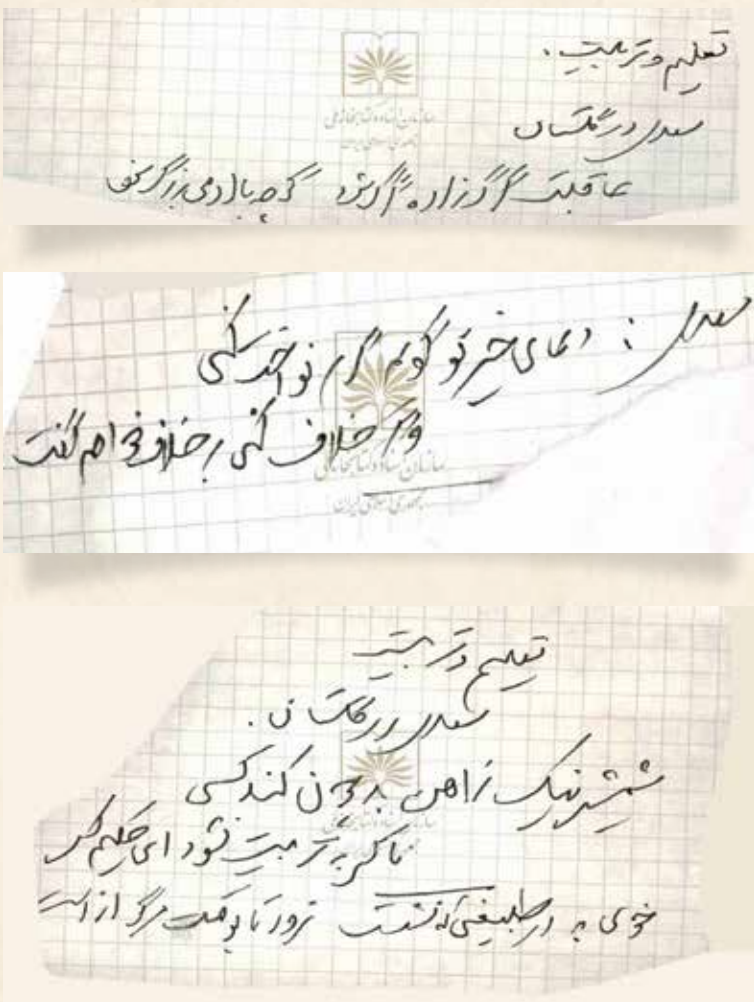 تعلیم و تربیت.
سعدی در گلستان
عاقبت گرگ زاده گرگ شود گرچه با آدمی بزرگ شود
سازمان اسناد و کتابخانه ملی
جمهوری اسلامی ایران
سعدی: دعای خیر تو گویم گرم نواخت کنی
وگر خلاف کنی بر خلاف خواهم گفت
سازمان اسناد و کتابخانه ملی
جمهوری اسلامی ایران
تعلیم و تربیت
سعدی در گلستان.
شمشیر نیک ز آهن بد چون کند کسی
ناکس به تربیت نشود ای حکیم کس
خوی بد در طبیعتی که نشست نرود تا بوقت مرگ از دست